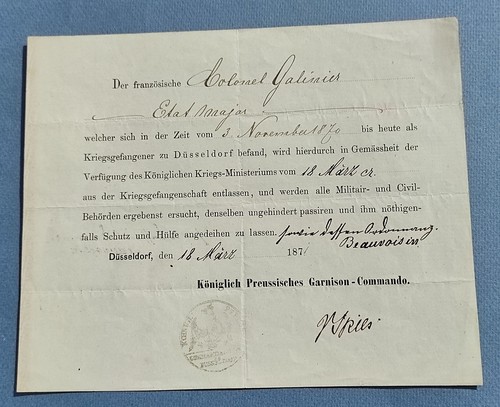 Der französische Colonel Galinier
Etat major
welcher sich in der Zeit vom 3. November 1870 bis heute als
Kriegsgefangener zu Düsseldorf befand, wird hierdurch in Gemässheit der
Verfügung des Königlichen Kriegs-Ministeriums vom 18 März cr.
aus der Kriegsgefangenschaft entlassen, und werden alle Militair- und Civil-
Behörden ergebenst ersucht, denselben ungehindert passiren und ihm nöthigen-
falls Schutz und Hülfe angedeihen zu lassen. sowie dessen Ordonnanz
Beauvoisin
Düsseldorf, den 18 März 1871
Königlich Preussisches Garnison-Commando.